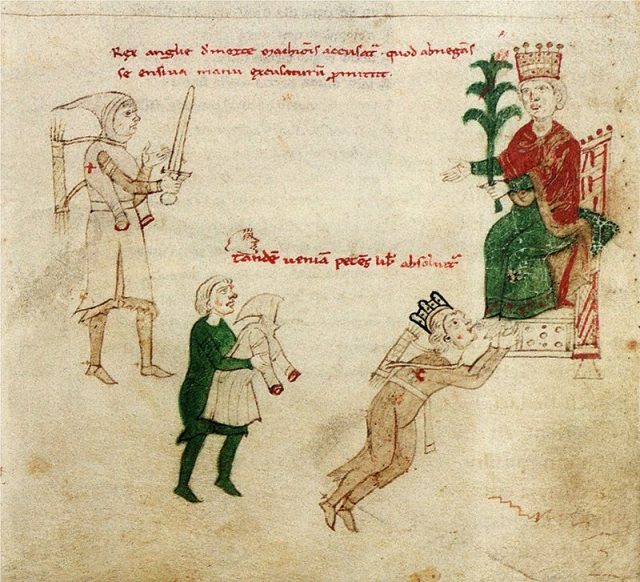 Rex anglie d' morte marchiōis accusat᷑. quod abnegās
se ensiua manu excusaturū p̄mittit.
tandē ueniā petēs lib̄ absoluit᷑